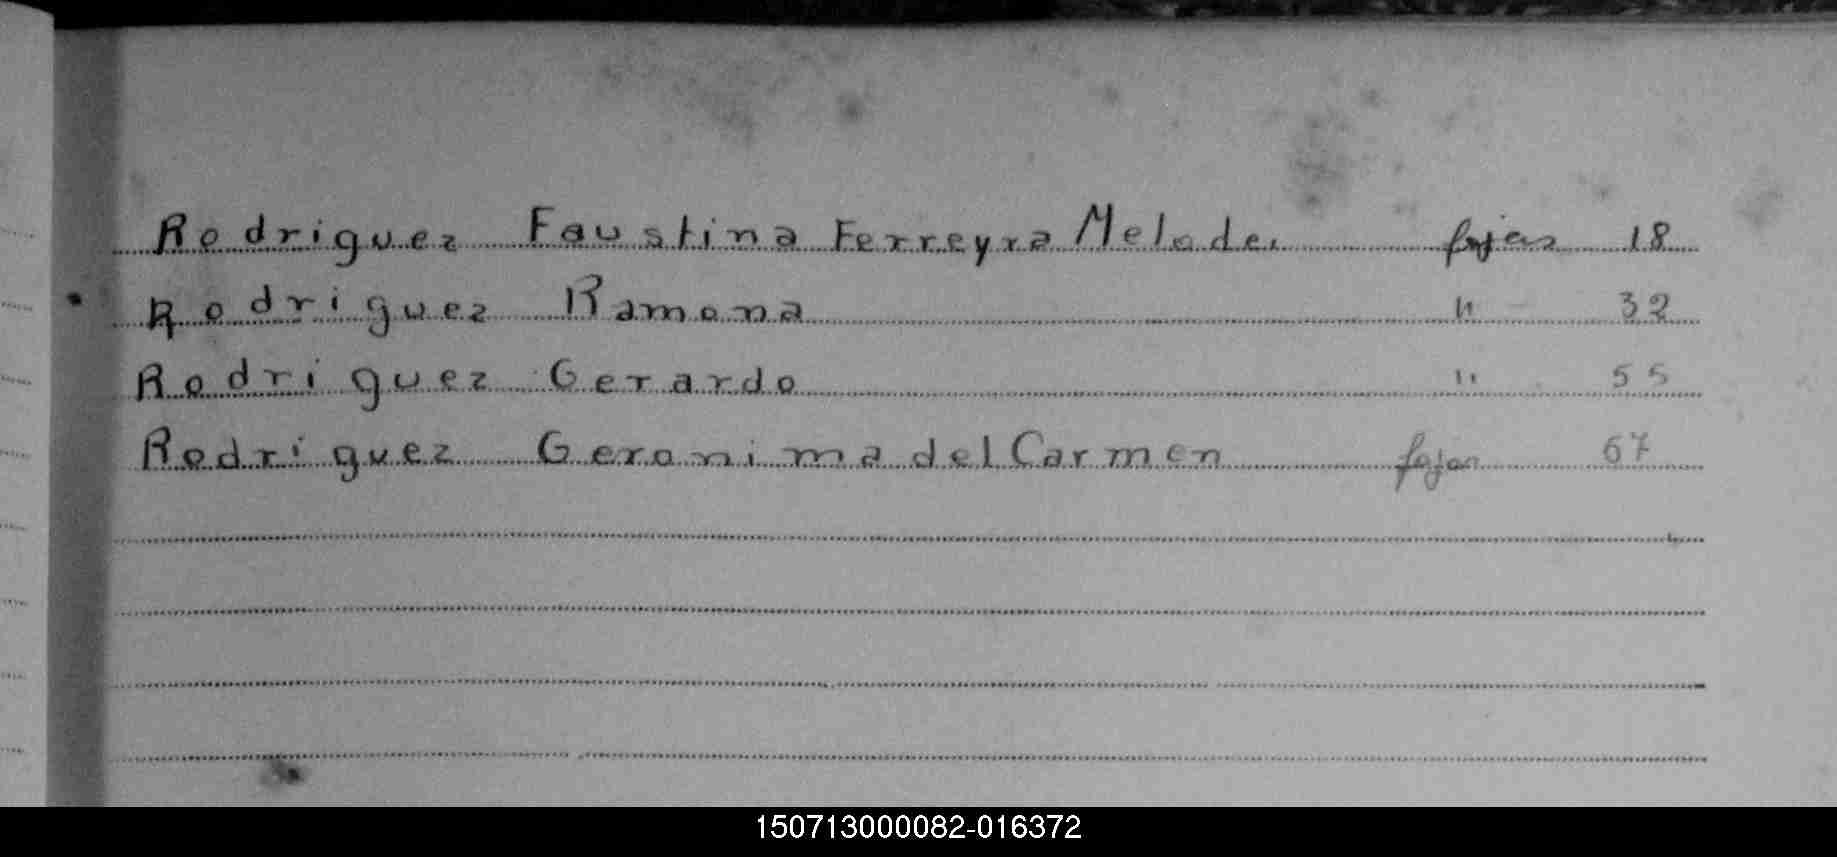 Rodriguez Faustina Ferreyra Melode. fojas 18
Rodriguez Ramona " 32
Rodriguez Gerardo " 55
Rodriguez Geronima del Carmen fojas 67
150713000082-016372